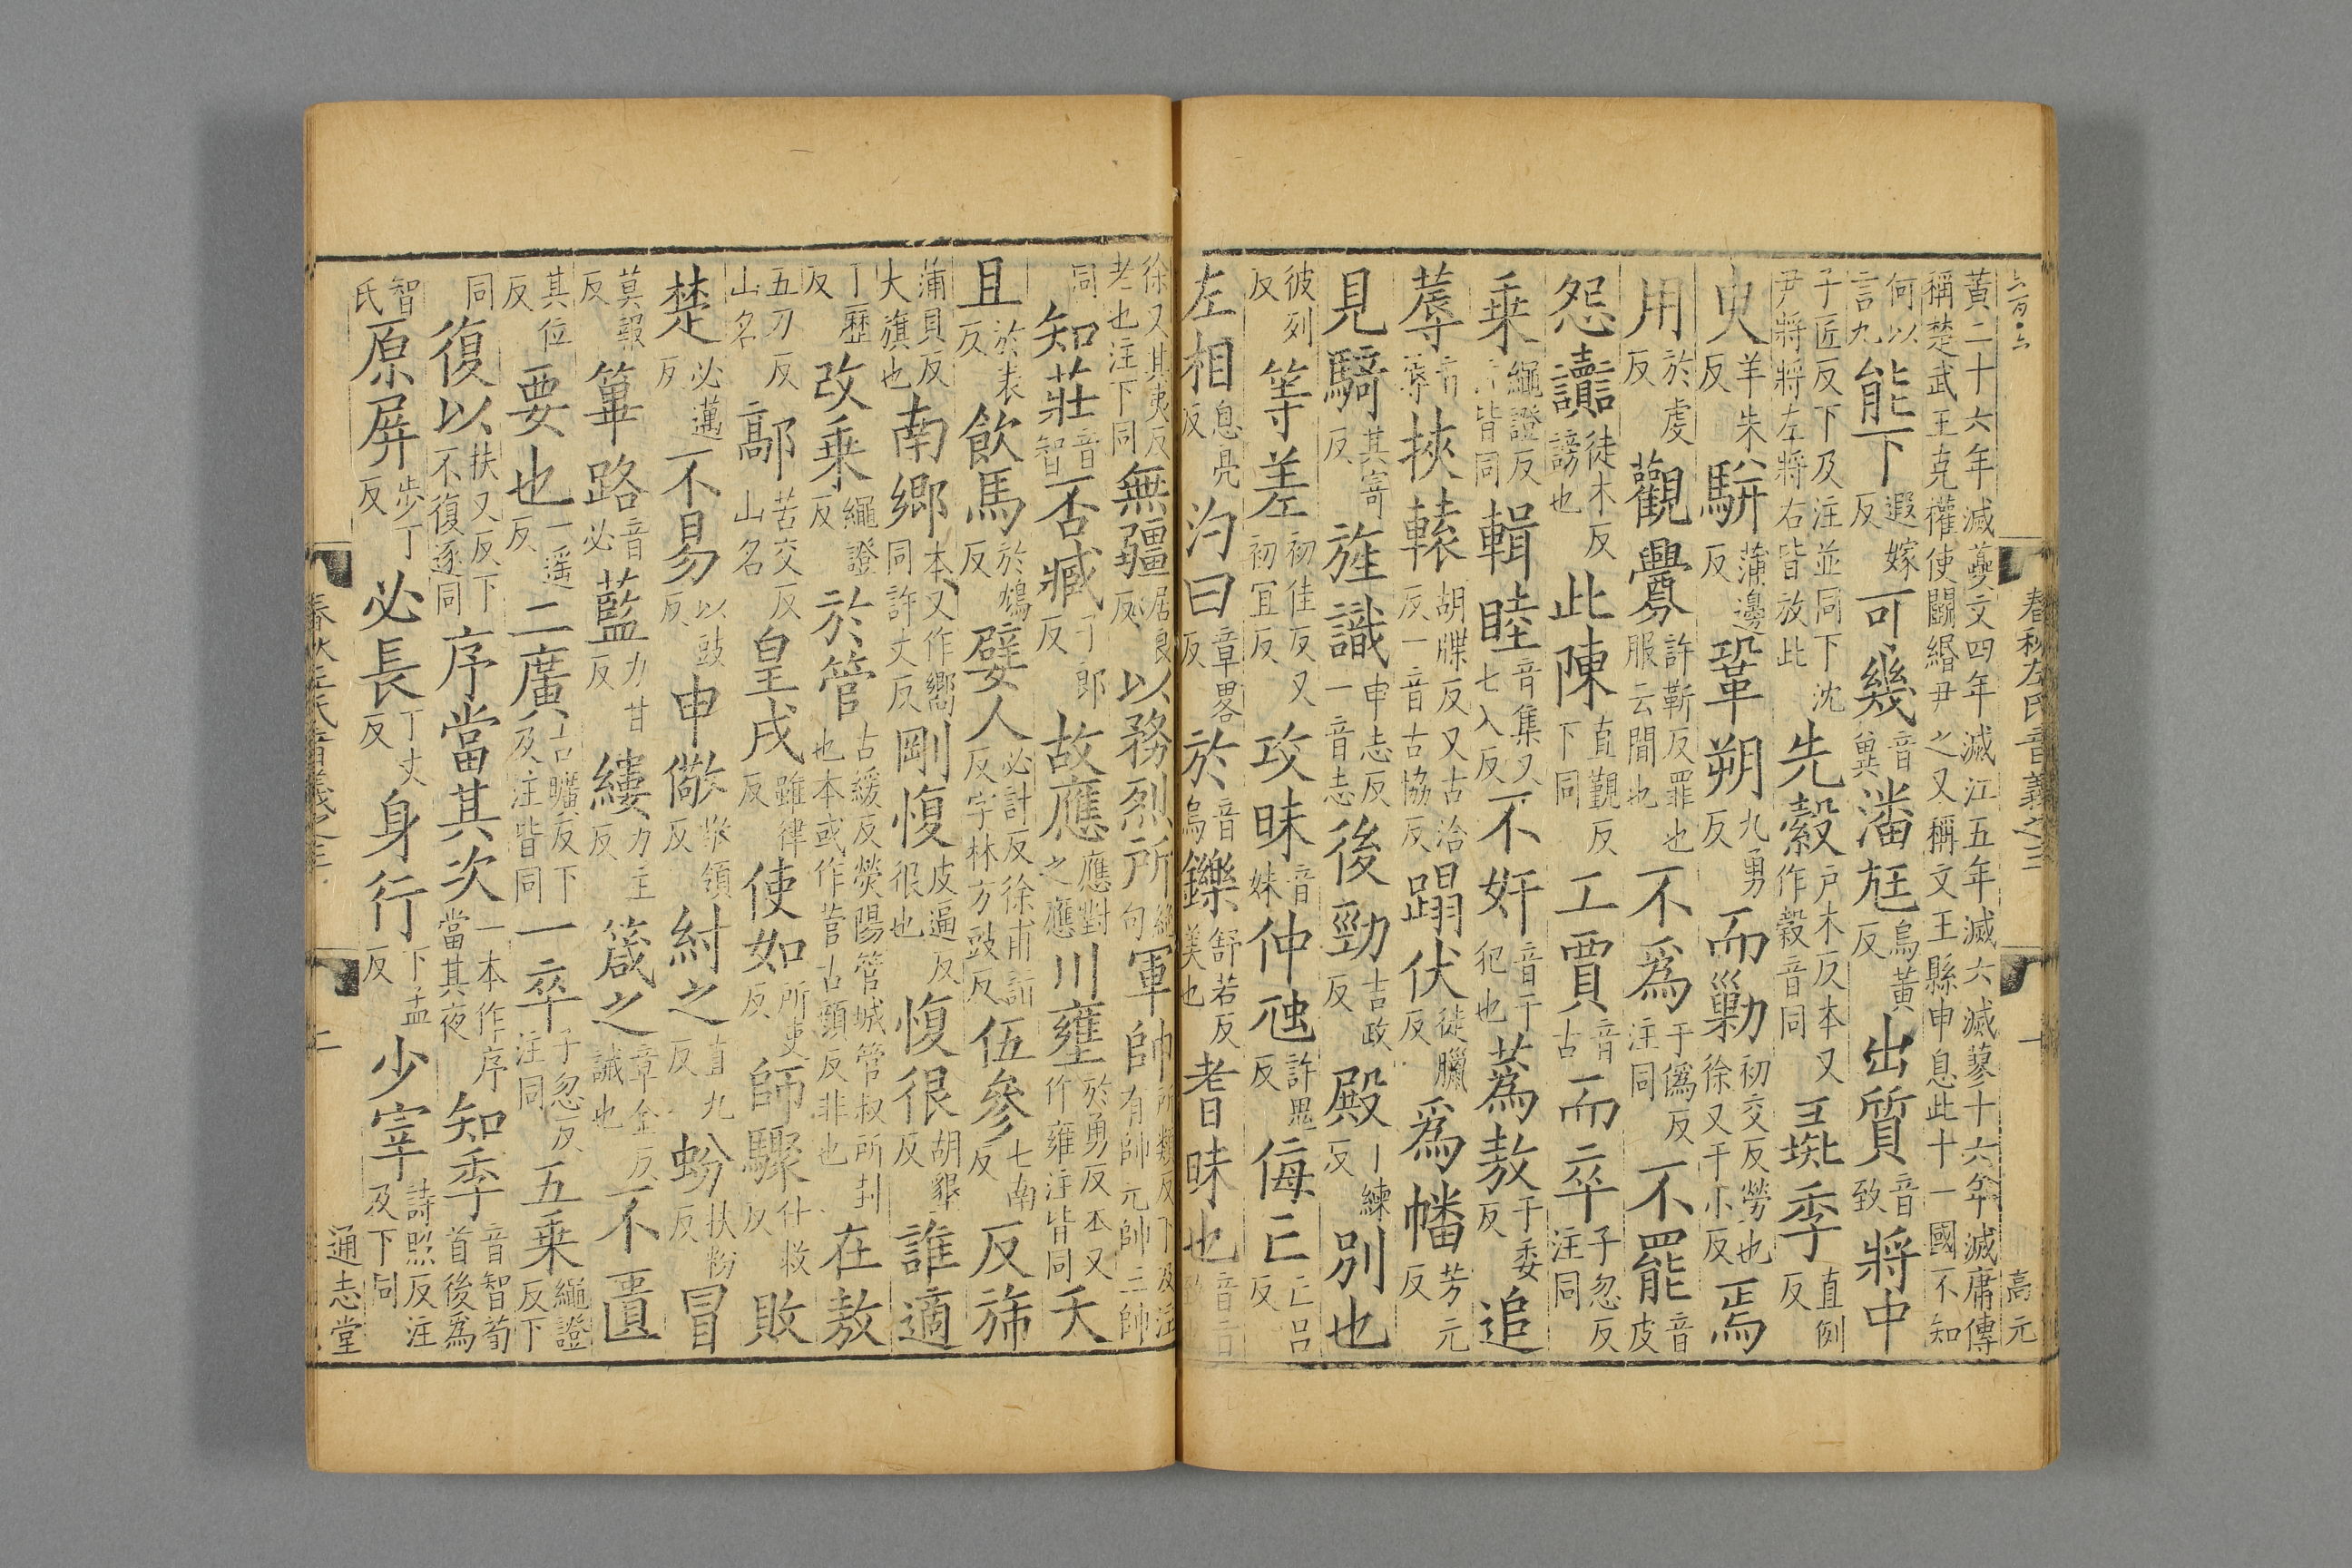 六百·六
春秋左氏音義之三
十
高元
黃二十六年滅夔文四年滅江五年滅六滅蓼十六年滅庸傳
稱楚武王克權使鬬緡尹之又稱文王縣申息此十一國不知
何以言九能下遐嫁反可幾音兾潘尫烏黃反出質音致將中
子匠反下及注並同下沈尹將將左將右皆放此先縠戶木反本又作穀音同彘季直例反
臾羊朱反駢蒲邊反鞏朔九勇反而勦初交反勞也徐又子小反焉
用於虔反觀釁許靳反罪也服云間也不爲于僞反注同不罷音皮
怨讟徒木反謗也此陳直覲反下同工賈音古而卒子忽反注同
乘繩證反皆同輯睦音集又七入反不奸音干犯也蒍敖于委反追
蓐音辱挾轅胡牒反又古洽反一音古協反蹋伏徒臘反爲幡芳元反
見騎其寄反旌識申志反一音志後勁吉政反殿丁練反別也
彼列反等差初佳反又初宜反攻昧音妹仲虺許鬼反侮亡亡呂反
左相息亮反汋曰章畧反於音烏鑠舒若反美也耆昧也音旨
徐又其夷反老也注下同無疆居良反以務烈所絶句軍帥所類反下及注有帥元帥三帥
同知莊音智否臧子郎反故應應對之應川壅於勇反本又作雍注皆同夭
且於表反飲馬於鴆反嬖人必計反徐甫詣反字林方豉反伍參七南反反斾
蒲貝反大旗也南鄉本又作嚮同許丈反剛愎皮逼反很也愎很胡墾反誰適
丁歷反改乘繩證反於管古緩反熒陽管城管叔所封也本或作菅古顏反非也在敖
五刀反山名鄗苦交反山名皇戌雖律反使如所吏反師驟仕救反敗
楚必邁反不易以豉反申儆敬領反紂之直九反蚡扶粉反冒
莫報反篳路音必藍力甘反縷力主反箴之章金反誡也不匱
其位反要也一遥反二廣古曠反下及注皆同一卒子忽反注同五乗繩證反下
同復以扶又反下不復逐同序當其次一本作序當其夜知季音智荀首後爲
智氏原屏步丁反必長丁丈反身行下孟反少宰詩照反注及下同
春秋左氏音義之三
通志堂